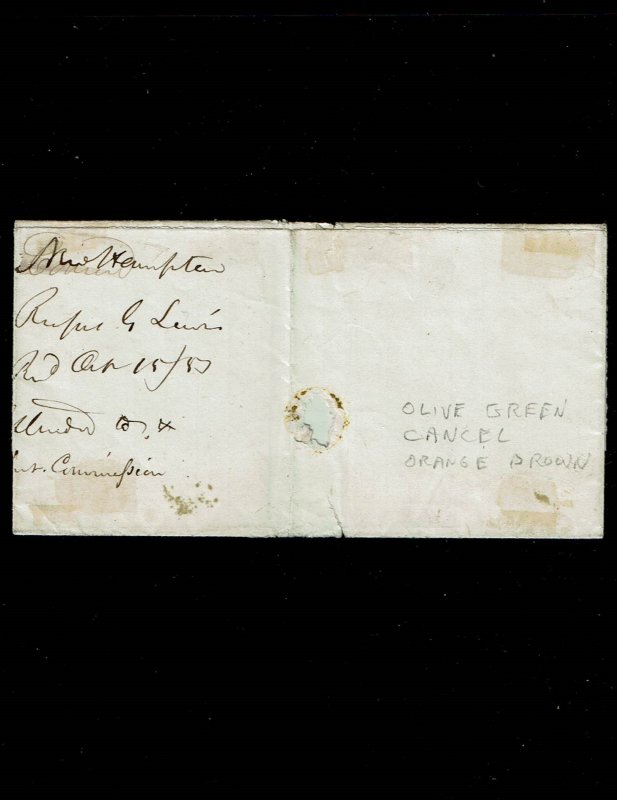 New Hampton
Rufus G Lewis
Rd Oct 15/53
Commission
OLIVE GREEN
CANCEL
ORANGE BROWN